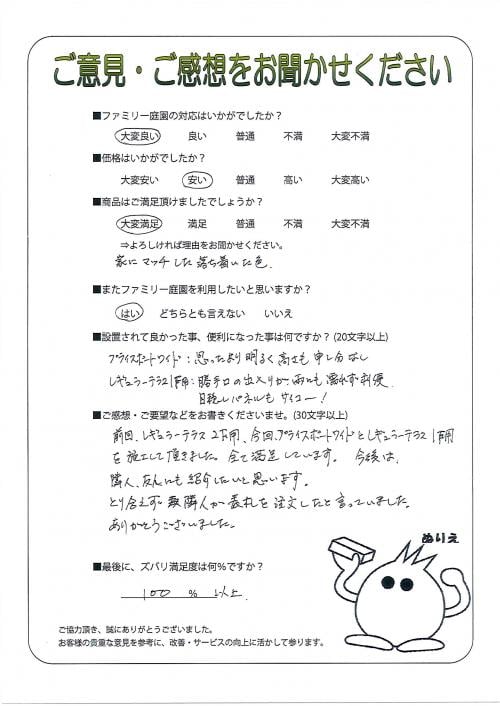 ご意見・ご感想をお聞かせください
■ファミリー庭園の対応はいかがでしたか？
大変良い 良い 普通 不満 大変不満
■価格はいかがでしたか？
大変安い 安い 普通 高い 大変高い
■商品はご満足頂けましたでしょうか？
大変満足 満足 普通 不満 大変不満
⇒よろしければ理由をお聞かせください。
家にマッチした落ち着いた色。
■またファミリー庭園を利用したいと思いますか？
はい どちらとも言えない いいえ
■設置されて良かった事、便利になった事は何ですか？(20文字以上)
プライスポートワイド：思ったより明るく高さも申し分なし
レギュラーテラス1F用：勝手口の出入りが雨にも濡れず便利、
目隠しパネルもサイコー！
■ご感想・ご要望などをお書きくださいませ。(30文字以上)
前回、レギュラーテラス2F用、今回、プライスポートワイドとレギュラーテラス1F用
を施工して頂きました。全て満足しています。今後は、
隣人、友人にも紹介したいと思います。
とり合えず、隣人が表札を注文したと言っていました。
ありがとうございました。
ぬりえ
■最後に、ズバリ満足度は何％ですか？
100 % 以上
ご協力頂き、誠にありがとうございました。
お客様の貴重な意見を参考に、改善・サービスの向上に活かして参ります。